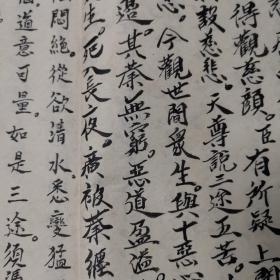 得觀慈顏。臣有所疑上
救慈悲。天尊説三途五苦。
今觀世間衆生。與十惡
遣。其業無窮。惡道盈溢
生。死入長夜。廣被業纏
悶絕。從欲清水悉變猛
道意可量。如是三途。須